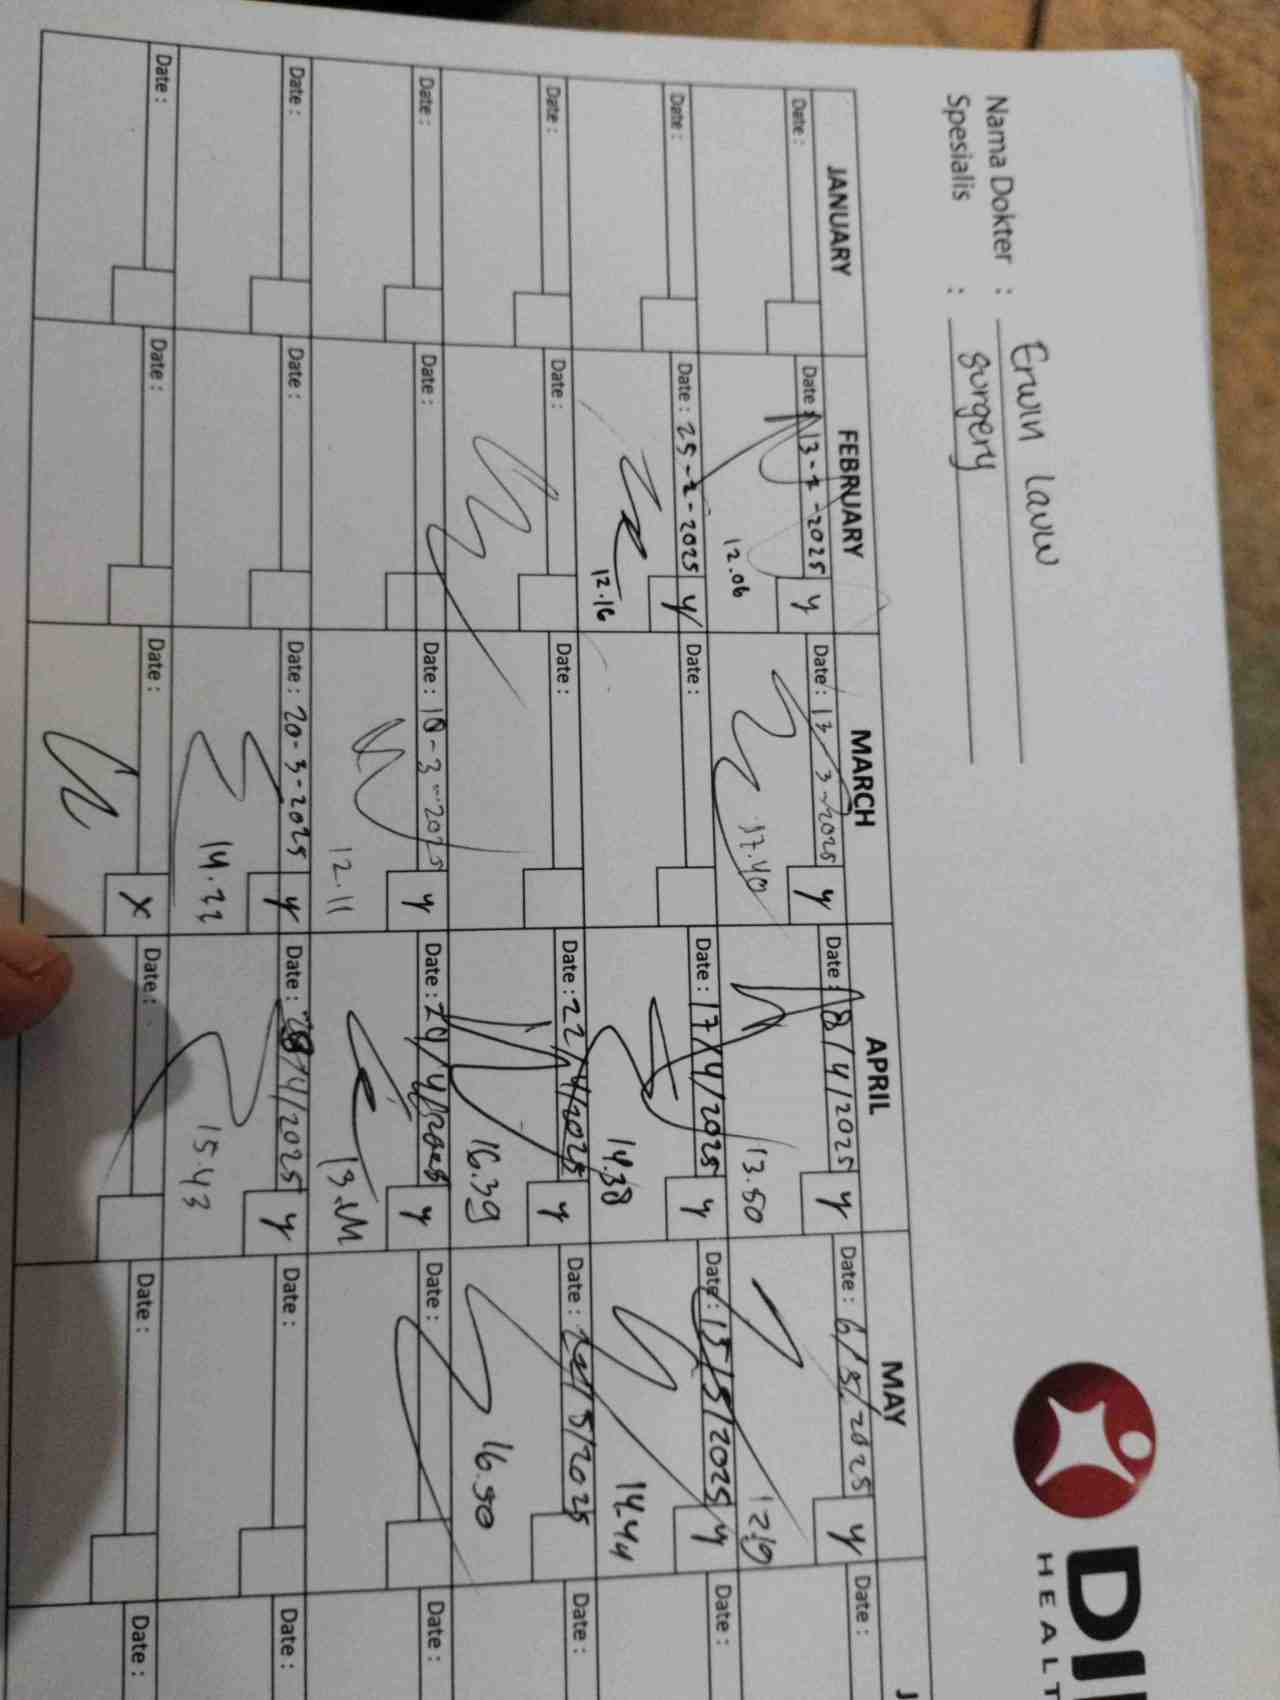 DI
HEALT
Nama Dokter : Erwin
Spesialis : surgery
JANUARY FEBRUARY MARCH APRIL MAY J
Date : Date : 13-2-2025 y Date : 13/3-2025 y Date : 8/4/2025 y Date : 6/5/2025 y Date :
12.06 17.40 13.50 12.19
Date : Date : 25-2-2025 y Date : Date : 17/4/2025 y Date : 15/5/2025 y Date :
12.16 14.38 14.44
Date : Date : Date : Date : 22/4/2025 y Date : /5/2025 Date :
16.39 16.50
Date : Date : Date : 10-3-2025 y Date : /4/2025 y Date : Date :
12.11
Date : Date : Date : 20-3-2025 y Date : 28/4/2025 y Date : Date :
14.22 15.43
Date : Date : Date : x Date : Date : Date :